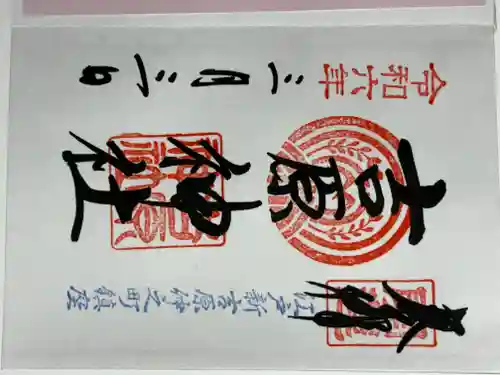 江戸新吉原仲之町鎮座
吉原神社
令和六年三月三日